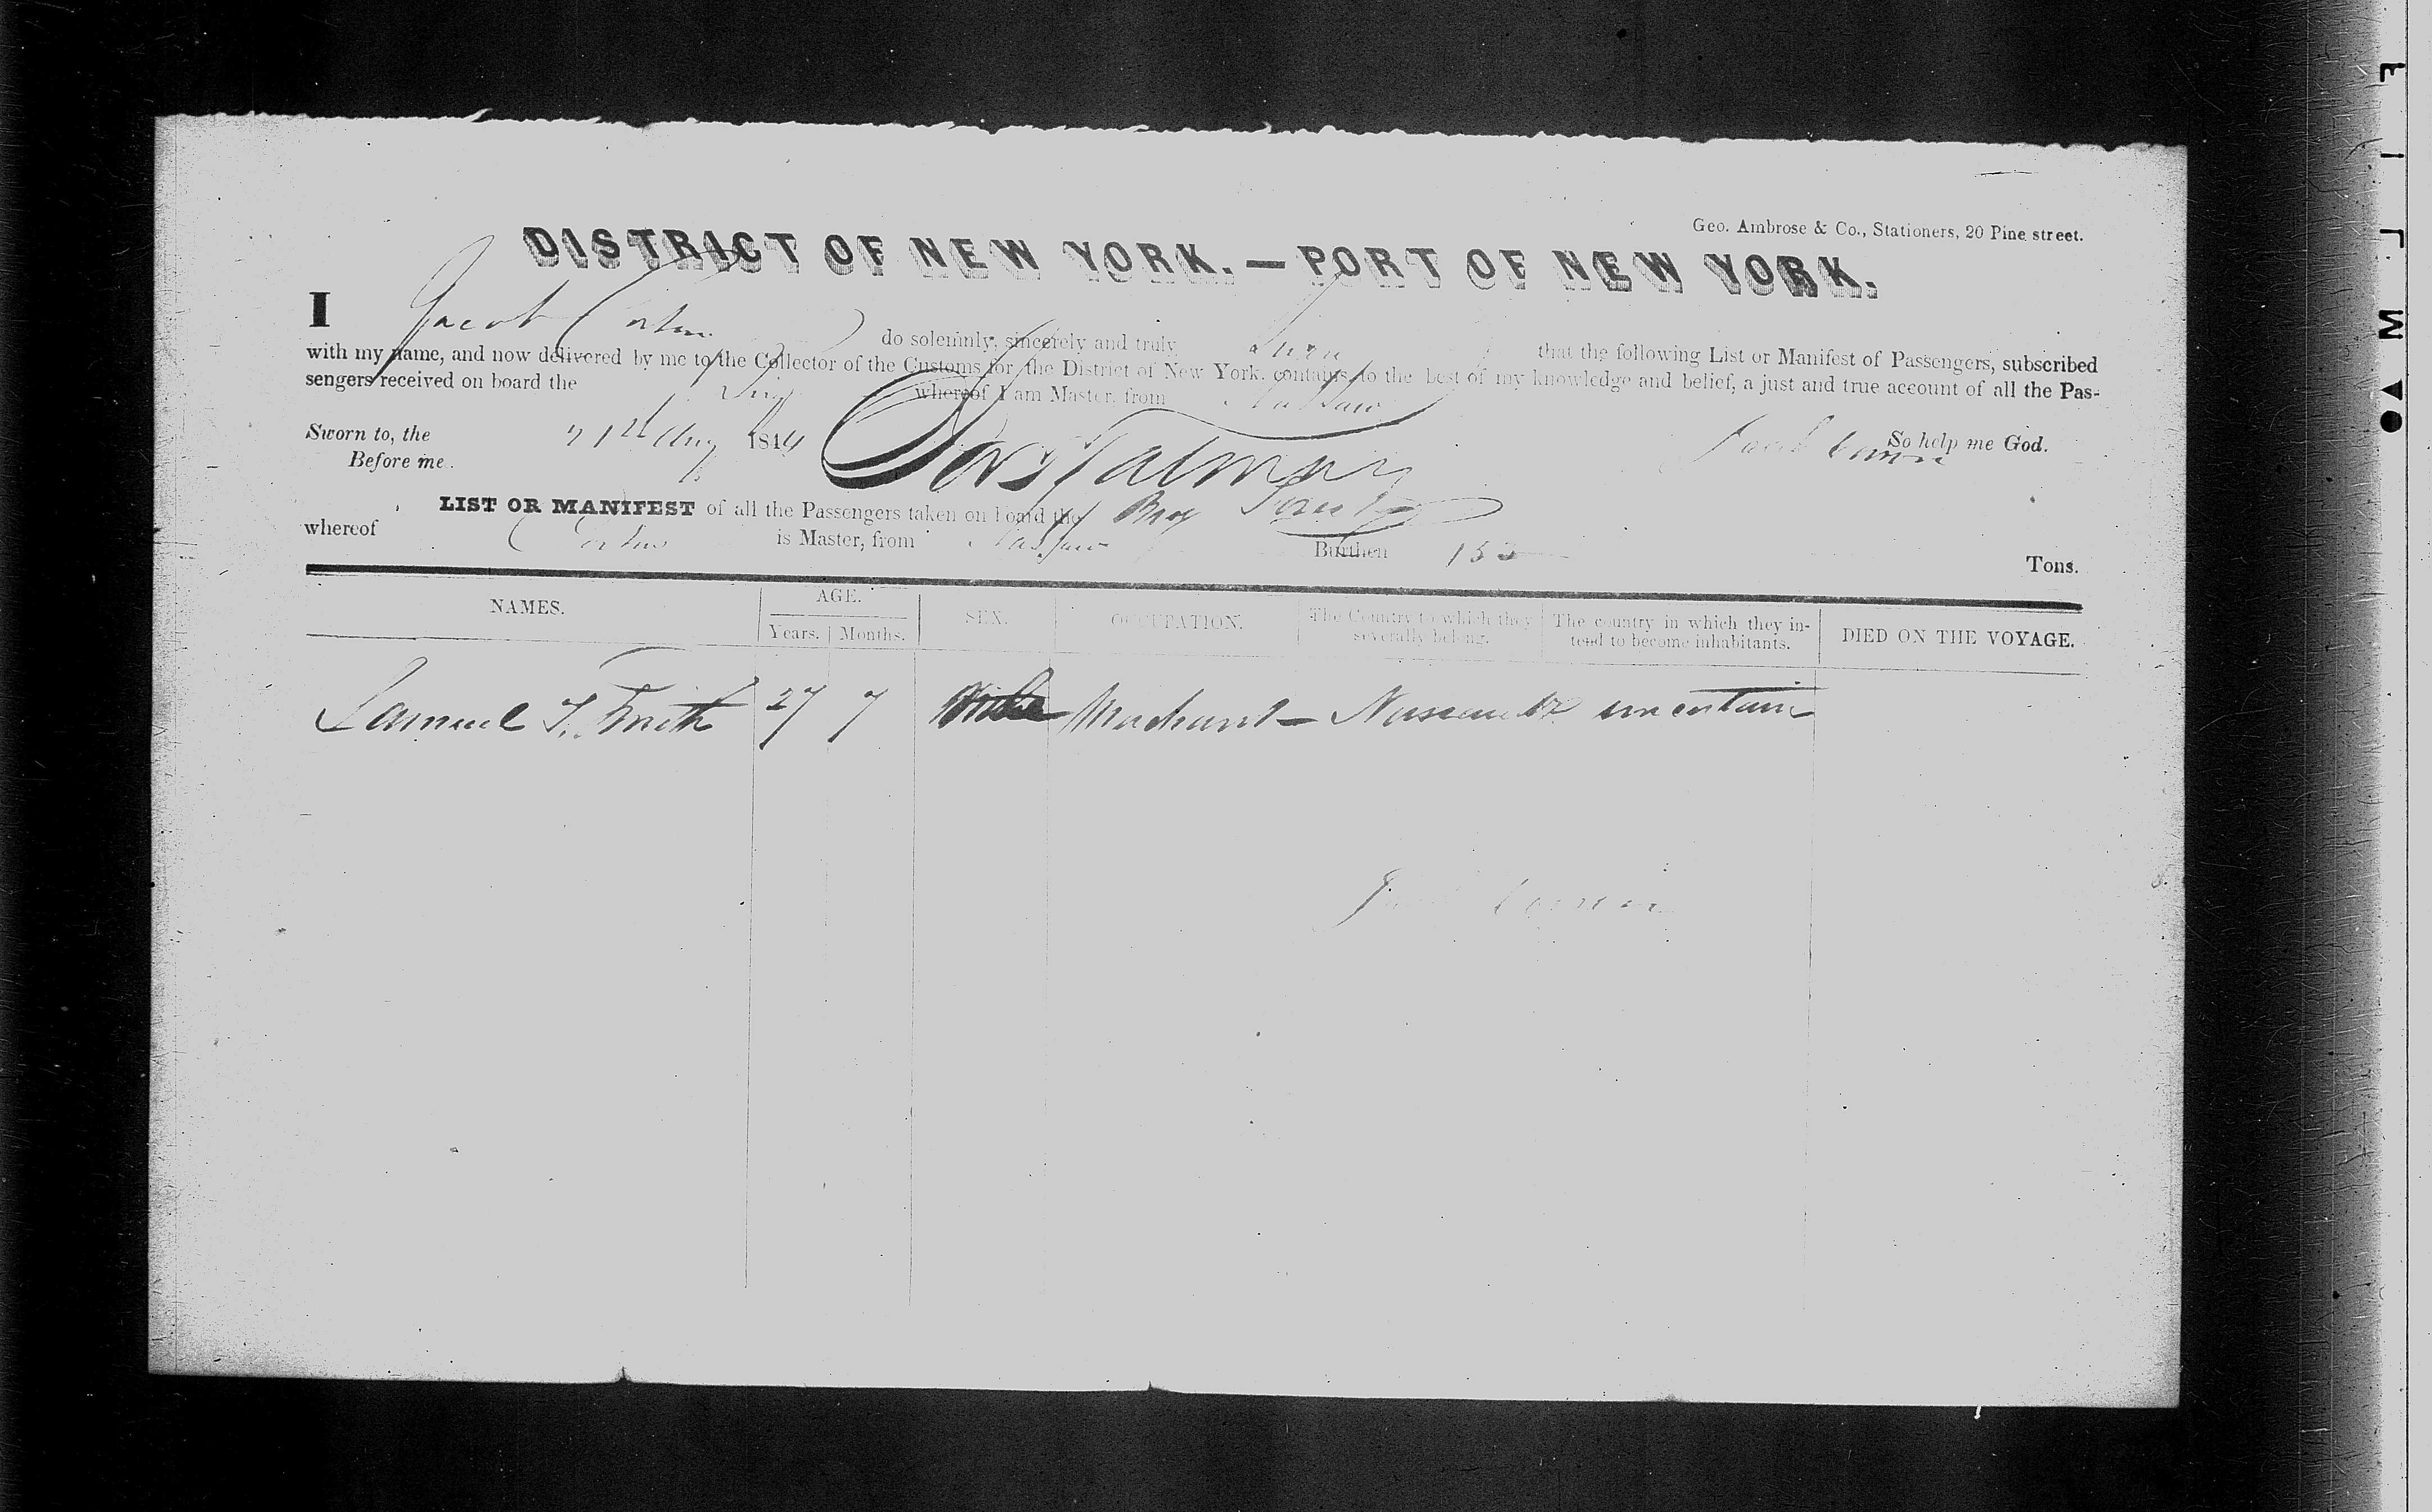 Geo. Ambrose & Co., Stationers, 20 Pine street.
DISTRICT OF NEW YORK. — PORT OF NEW YORK.
I Jacob do solemnly, sincerely and truly that the following List or Manifest of Passengers, subscribed
with my name, and now delivered by me to the Collector of the Customs for the District of New York, contains, to the best of my knowledge and belief, a just and true account of all the Pas-
sengers received on board the Brig whereof I am Master, from Nassau
So help me God.
Sworn to, the 21st Aug 1844
Before me.
LIST OR MANIFEST of all the Passengers taken on board the Brig
whereof is Master, from Nassau Burthen Tons.
NAMES. AGE. SEX. OCCUPATION. The Country to which they severally belong. The country in which they in-tend to become inhabitants. DIED ON THE VOYAGE.
Years. Months.
Samuel T. Smith 27 7 Male Merchant Nassau uncertain